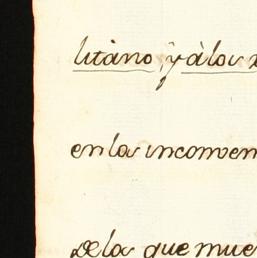 litàno, ÿ àlos
en los inconven
De los que mue